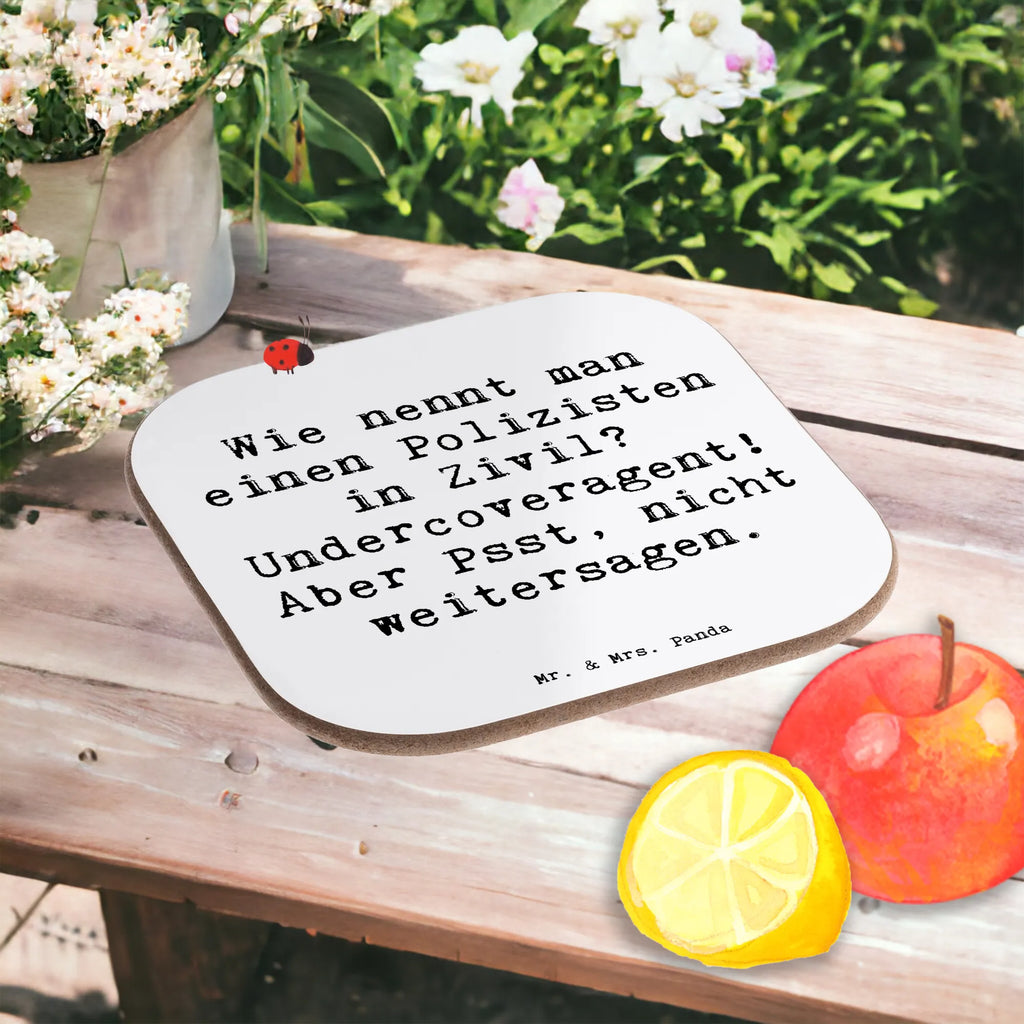 Wie nennt man
einen Polizisten
in Zivil?
Undercoveragent!
Aber Psst, nicht
weitersagen.
Mr. & Mrs. Panda